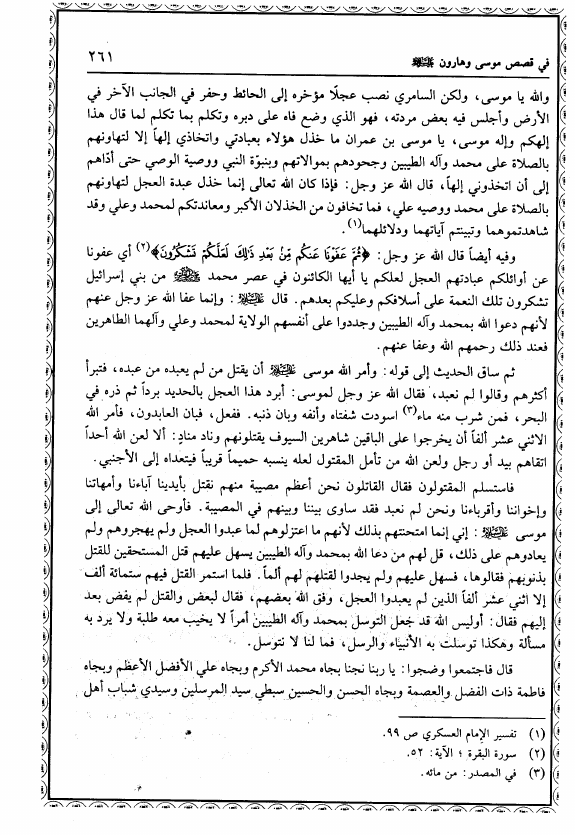 في قصص موسى وهارون ٢٦١
والله يا موسى، ولكن السامري نصب عجلًا مؤخره إلى الحائط وحفر في الجانب الآخر في
الأرض وأجلس فيه بعض مردته، فهو الذي وضع فاه على دبره وتكلم بما تكلم لما قال هذا
إلهكم وإله موسى، يا موسى بن عمران ما خذل هؤلاء بعبادتي واتخاذي إلهاً إلا لتهاونهم
بالصلاة على محمد وآله الطيبين وجحودهم بموالاتهم وبنبوّة النبي ووصية الوصي حتى أدّاهم
إلى أن اتخذوني إلهاً، قال الله عز وجل: فإذا كان الله تعالى إنما خذل عبدة العجل لتهاونهم
بالصلاة على محمد ووصيه علي، فما تخافون من الخذلان الأكبر ومعاندتكم لمحمد وعلي وقد
شاهدتموهما وتبينتم آياتهما ودلائلهما(١).
وفيه أيضاً قال الله عز وجل: ﴿ثُمَّ عَفَوْنَا عَنكُم مِّن بَعْدِ ذَلِكَ لَعَلَّكُمْ تَشْكُرُونَ﴾(٢) أي عفونا
عن أوائلكم عبادتهم العجل لعلكم يا أيها الكائنون في عصر محمد من بني إسرائيل
تشكرون تلك النعمة على أسلافكم وعليكم بعدهم. قال : وإنما عفا الله عز وجل عنهم
لأنهم دعوا الله بمحمد وآله الطيبين وجددوا على أنفسهم الولاية لمحمد وعلي وآلهما الطاهرين
فعند ذلك رحمهم الله وعفا عنهم.
ثم ساق الحديث إلى قوله: وأمر الله موسى أن يقتل من لم يعبده من عبده، فتبرأ
أكثرهم وقالوا لم نعبد، فقال الله عز وجل لموسى: أبرد هذا العجل بالحديد برداً ثم ذره في
البحر، فمن شرب منه ماء(٣) اسودت شفتاه وأنفه وبان ذنبه. ففعل، فبان العابدون، فأمر الله
الاثني عشر ألفاً أن يخرجوا على الباقين شاهرين السيوف يقتلونهم وناد منادٍ: ألا لعن الله أحداً
اتقاهم بيد أو رجل ولعن الله من تأمل المقتول لعله ينسبه حميماً قريباً فيتعداه إلى الأجنبي.
فاستسلم المقتولون فقال القاتلون نحن أعظم مصيبة منهم نقتل بأيدينا آباءنا وأمهاتنا
وإخواننا وأقرباءنا ونحن لم نعبد فقد ساوى بيننا وبينهم في المصيبة. فأوحى الله تعالى إلى
موسى : إني إنما امتحنتهم بذلك لأنهم ما اعتزلوهم لما عبدوا العجل ولم يهجروهم ولم
يعادوهم على ذلك، قل لهم من دعا الله بمحمد وآله الطيبين يسهل عليهم قتل المستحقين للقتل
بذنوبهم فقالوها، فسهل عليهم ولم يجدوا لقتلهم لهم ألماً. فلما استمر القتل فيهم ستمائة ألف
إلا اثني عشر ألفاً الذين لم يعبدوا العجل، وفق الله بعضهم، فقال لبعض والقتل لم يفض بعد
إليهم فقال: أوليس الله قد جعل التوسل بمحمد وآله الطيبين أمراً لا يخيب معه طلبة ولا يرد به
مسألة وهكذا توسلت به الأنبياء والرسل، فما لنا لا نتوسل.
قال فاجتمعوا وضجوا: يا ربنا نجنا بجاه محمد الأكرم وبجاه علي الأفضل الأعظم وبجاه
فاطمة ذات الفضل والعصمة وبجاه الحسن والحسين سبطي سيد المرسلين وسيدي شباب أهل
(١) تفسير الإمام العسكري ص ٩٩.
(٢) سورة البقرة ؛ الآية: ٥٢.
(٣) في المصدر: من مائه.